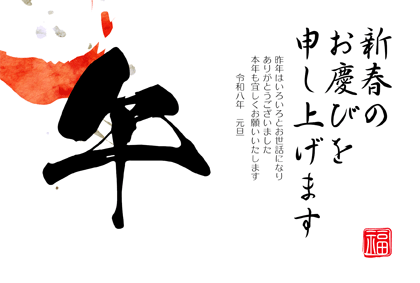 新春の
お慶びを
申し上げます
昨年はいろいろとお世話になり
ありがとうございました
本年も宜しくお願いいたします
令和八年　元旦
午
福